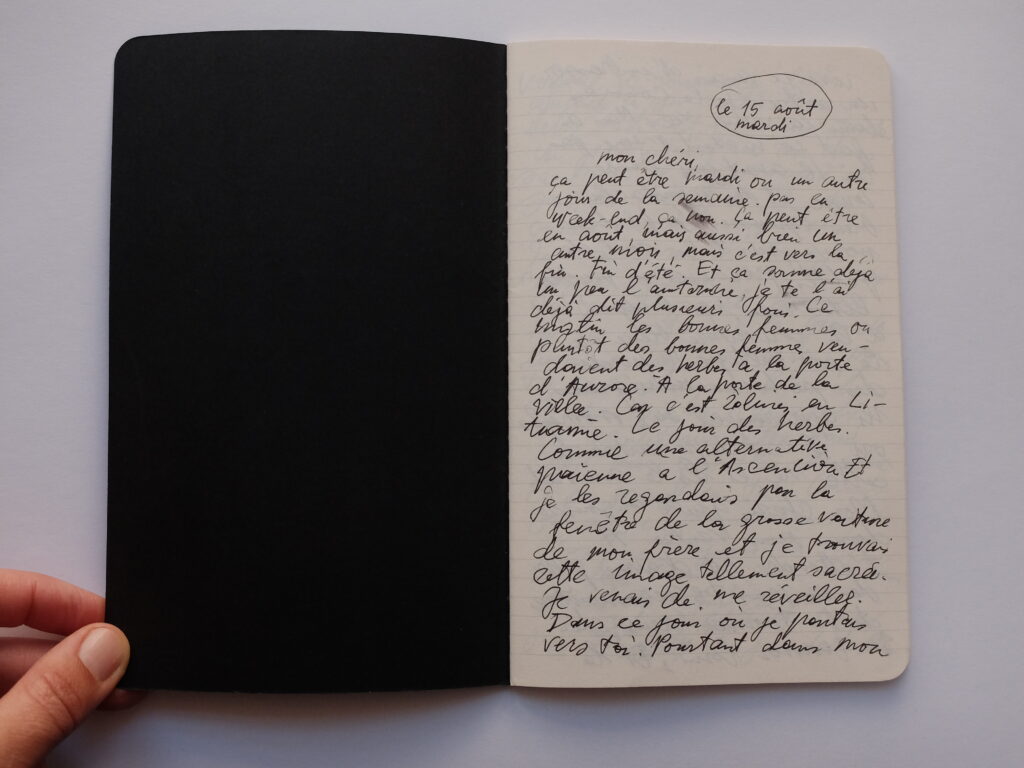 le 15 août
mardi
mon chéri,
ça peut être mardi ou un autre
jour de la semaine. pas le
week-end, ça non. ça peut être
en août, mais aussi bien un
autre mois, mais c'est vers la
fin. Fin d'été. Et ça sonne déjà
un peu l'automne, je te l'ai
déjà dit plusieurs fois. Ce
matin les bonnes femmes ou
plutôt des bonnes femme ven-
daient des herbes a la porte
d'Aurore. A la porte de la
ville. Car c'est Zolinės en Li-
tuanie. Le jour des herbes.
Comme une alternative
païenne a l'Ascencion. Et
je les regardais par la
fenêtre de la grosse voiture
de mon frère et je trouvais
cette image tellement sacré.
Je venais de me réveiller.
Dans ce jour où je partais
vers toi. Pourtant dans mon